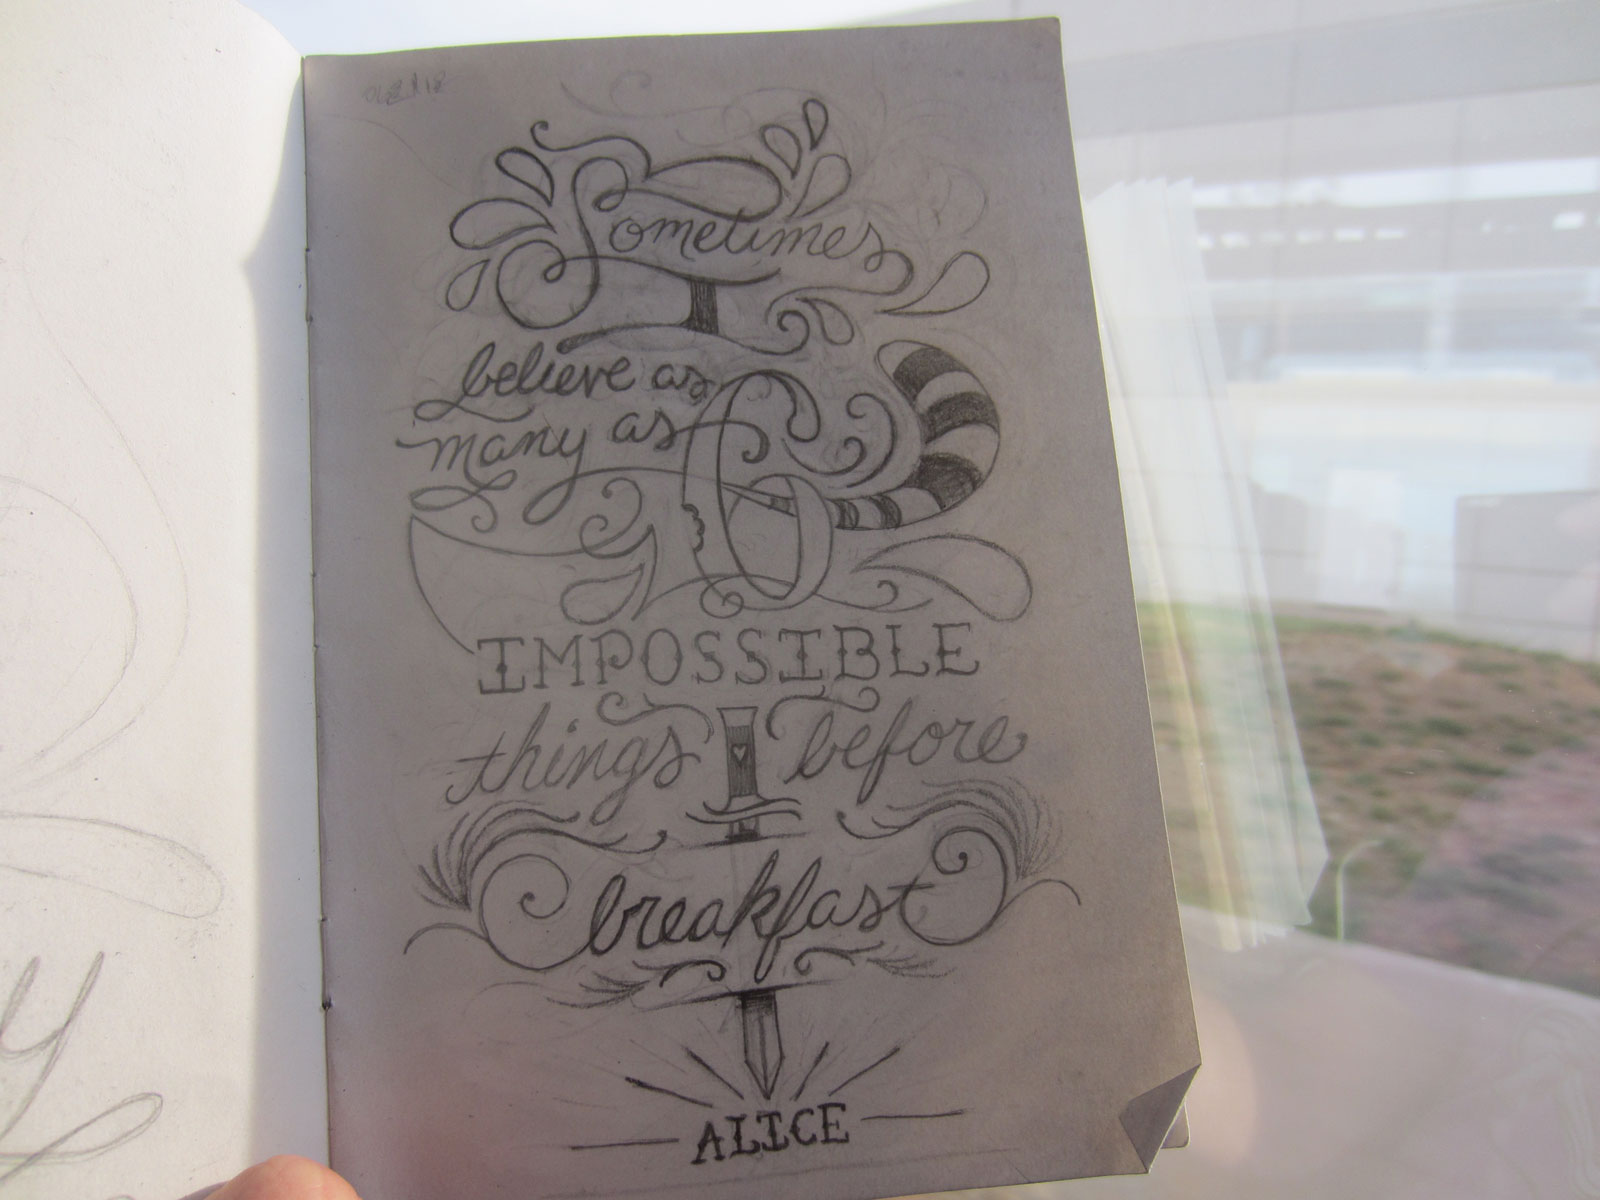 Sometimes
believe as
many as 6
IMPOSSIBLE
things before
breakfast
ALICE